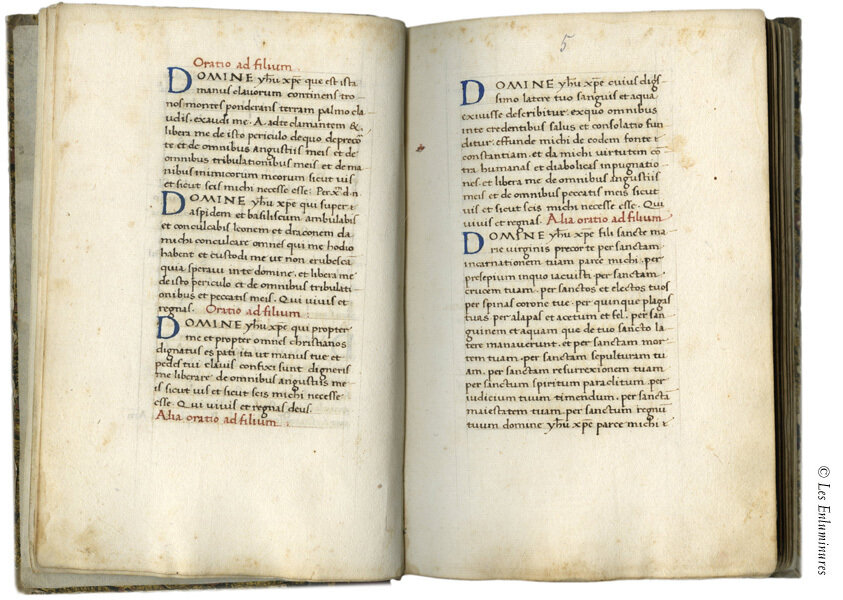 Oratio ad filium
DOMINE yhū xpē que est ista
manus clauorum continens tro-
nos montes ponderans terram palmo clau
dis. exaudi me. A. adte clamantem &
libera me de isto periculo dequo deprecor
te et de omnibus angustiis meis et de
omnibus tribulationibus meis et de ma-
nibus inimicorum meorum sicut vis
et sicut scis michi necesse esse: Per x̄. d.n.
DOMINE yhū xpē qui super
aspidem et basiliscum ambulabis
et conculcabis leonem et draconem da
michi conculcare omnes qui me hodio
habent et custodi me ut non erubescā
quia speraui inte domine. et libera me
de isto periculo et de omnibus tribulati-
onibus et peccatis meis. Qui viuis et
regnas. Oratio ad filium:
DOMINE yhū xpē qui propter
me et propter omnes christianos
dignatus es pati ita ut manus tue et
pedes tui clauis confixi sunt digneris
me liberare de omnibus angustiis me-
is sicut vis et sicut scis michi necesse
esse. Qui viuis et regnas deus.
Alia oratio ad filium.
5
DOMINE yhū xpē cuius digs-
simo latere tuo sanguis et aqua
exiuisse describitur. exquo omnibus
inte credentibus salus et consolatio fun
ditur. effunde michi de eodem fonte
constantiam. et da michi virtutem cō-
tra humanas et diabolicas inpugnatio-
nes et libera me de omnibus angustiis
meis et de omnibus peccatis meis sicut
vis et sicut scis michi necesse esse. Qui
viuis et regnas. Alia oratio ad filium
DOMINE yhū xpē fili sancte ma-
rie virginis precor te per sanctam
incarnationem tuam parce michi. per
presepium inquo iacuista. per sanctam
crucem tuam. per sanctos et electos tuos
per spinas corone tue. per quinque plagas
tuas. per alapas et acetum et fel. per san-
guinem et aquam que de tuo sancto la-
tere manauerunt. et per sanctam mor-
tem tuam. per sanctam sepulturam tu
am. per sanctam resurrexionem tuam
per sanctum spiritum paraclitum. per
iudicium tuum timendum. per sanctā
maiestatem tuam. per sanctum regnū
tuum domine yhū xpē parce michi
© Les Enluminures